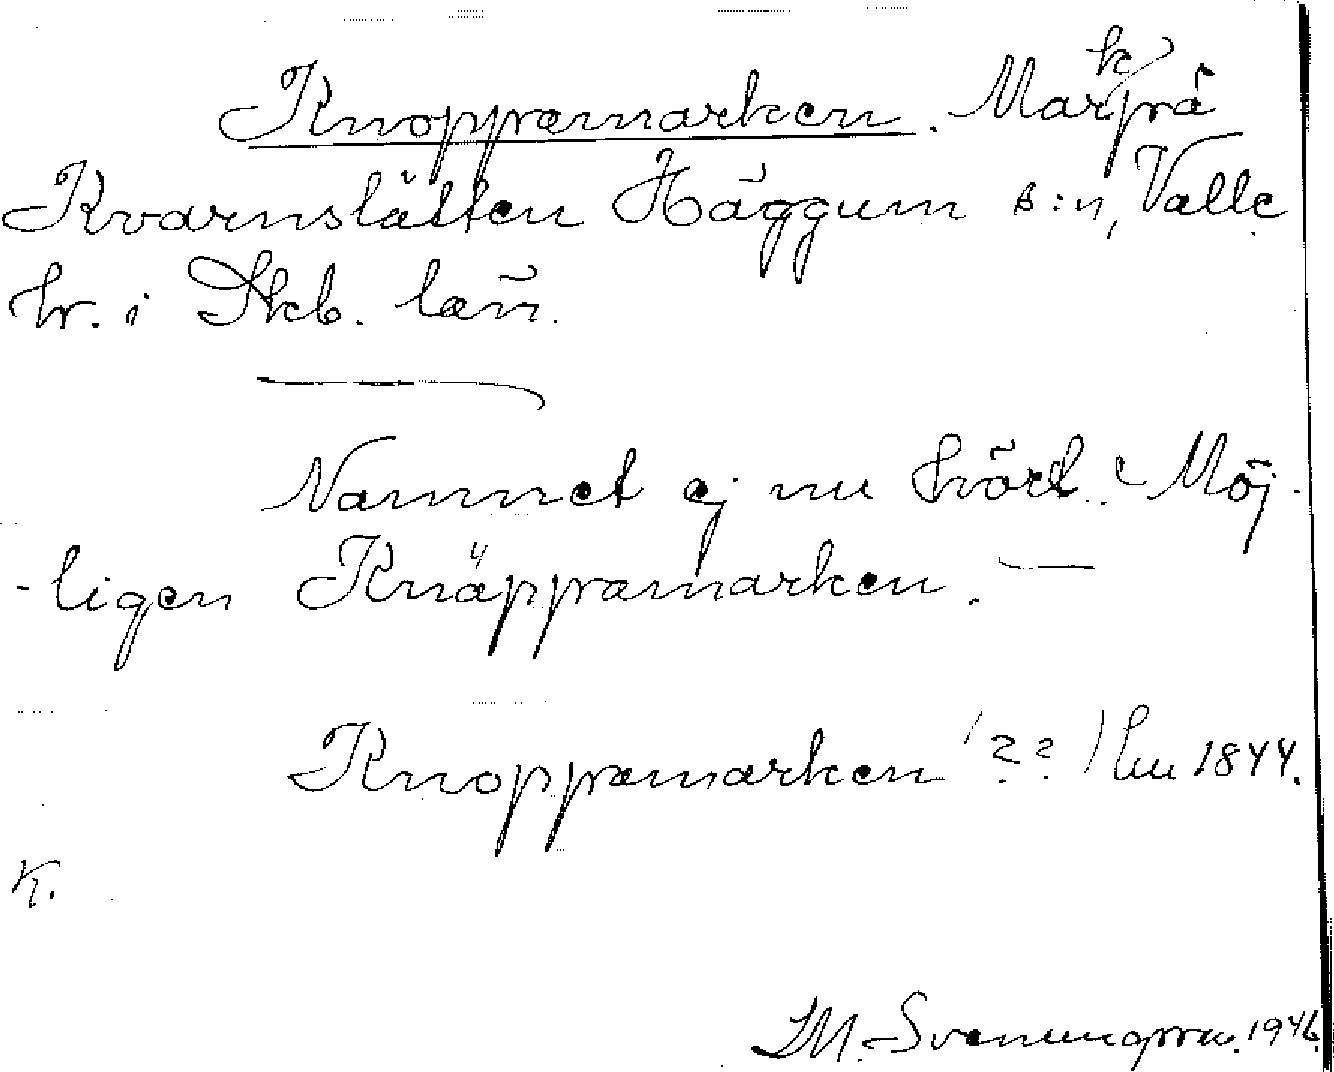 Knoppamarken. Mark på
Kvarnslätten Häggum s:n, Valle
hr. i Skb. län.
Namnet ej nu hört. Möj-
-ligen Knäppamarken. —
Knoppamarken (??) Lm 1844.
K.
I M. Svenungsson. 1946.